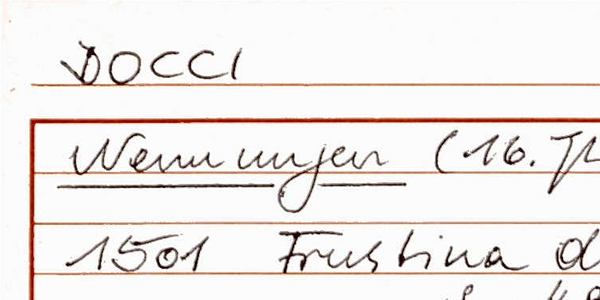 DOCCI
Nennungen (16. Jh
1501 Frustina d